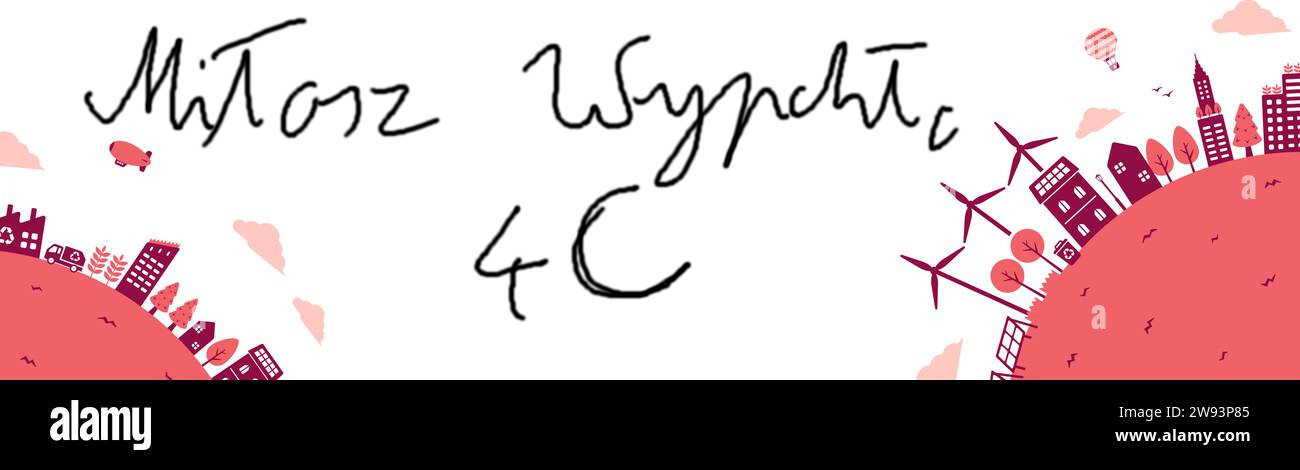 Miłosz Wypchło
4C
a
a
a
alamy
Image ID: 2W93P85
www.alamy.com